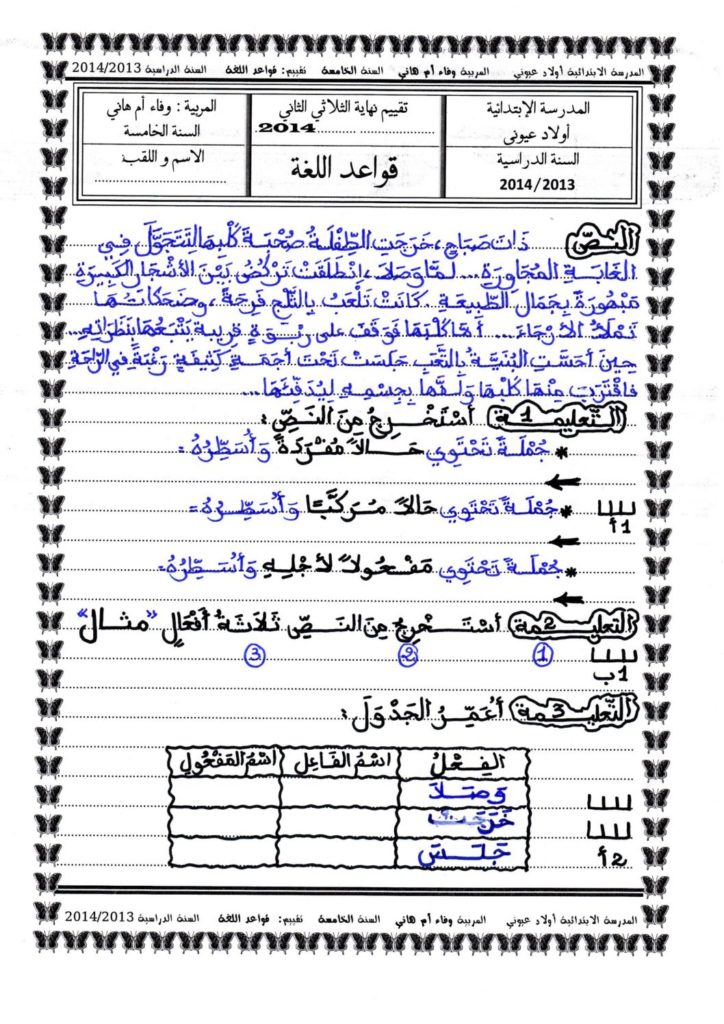 المدرسة الابتدائية أولاد عيوني المربية وفاء أم هاني السنة الخامسة تقييم: قواعد اللغة السنة الدراسية 2014/2013
المدرسة الإبتدائية
أولاد عيوني
السنة الدراسية
2014/2013
تقييم نهاية الثلاثي الثاني
2014
قواعد اللغة
المربية : وفاء أم هاني
السنة الخامسة
الاسم و اللقب:
النص ذَات صَبَاحٍ، خَرَجَتِ الطِّفْلَةُ صُحْبَةَ كَلْبِهَا لِتَتَجَوَّلَ فِي
الغَابَةِ المُجَاوِرَةِ... لمَّا وَصَلاَ، انْطَلَقَتْ تَرْكُضُ بَيْنَ الأَشْجَارِ الكَبِيرَةِ
مَبْهُورَةً بِجَمَالِ الطَّبِيعَةِ. كَانَتْ تَلْعَبُ بِالثَّلْجِ فَرِحَةً، وَضَحَكَاتُهَا
تَمْلَأُ الأَرْجَاءَ... أمَّا كَلْبُهَا فَوَقَفَ على رَبْوَةٍ قريبة يَتْبَعُهَا بِنَظَرَاتِهِ...
حِينَ أَحَسَّتِ البُنَيَّةُ بِالتَّعَبِ جَلَسَتْ تَحْتَ أَجَمَةٍ كَثِيفَةٍ رَغْبَةً في الرَّاحَةِ
فاقْتَرَبَ مِنْهَا كَلْبُهَا وَلَفَّهَا بِجِسْمِهِ لِيُدَفِّئَهَا...
التعليمة 1 أسْتَخْرِجُ مِنَ النَصِّ :
* جُمْلَةً تَحْتَوِي حَالاً مُفْرَدَةً وَأُسَطِّرُهُ =
* جُمْلَةً تَحْتَوِي حَالاً مُرَكَّبًا وَأُسَطِّرُهُ =
مع1أ
* جُمْلَةً تَحْتَوِي مَفْعُولاً لأَجْلِهِ وَأُسَطِّرُهُ =
التعليمة 2 أسْتَخْرِجُ مِنَ النَصِّ ثَلاَثَةَ أَفْعَالٍ "مثال"
1 2 3
1ب
التعليمة 3 أُعَمِّرُ الجَدْوَلَ :
الفِعْلُ اسْمُ الفَاعِلِ اسْمُ المَفْعُولِ
وَصَلاَ
خَرَجَتْ
جَلَسَ
2أ
المدرسة الابتدائية أولاد عيوني المربية وفاء أم هاني السنة الخامسة تقييم: قواعد اللغة السنة الدراسية 2014/2013